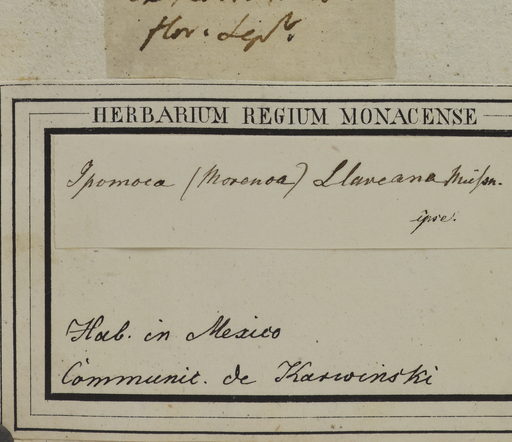 flor. Septr.
HERBARIUM REGIUM MONACENSE
Ipomoea (Morenoa) Llaveana Meißn.
ipse.
Hab. in Mexico
Communic. de Karwinski